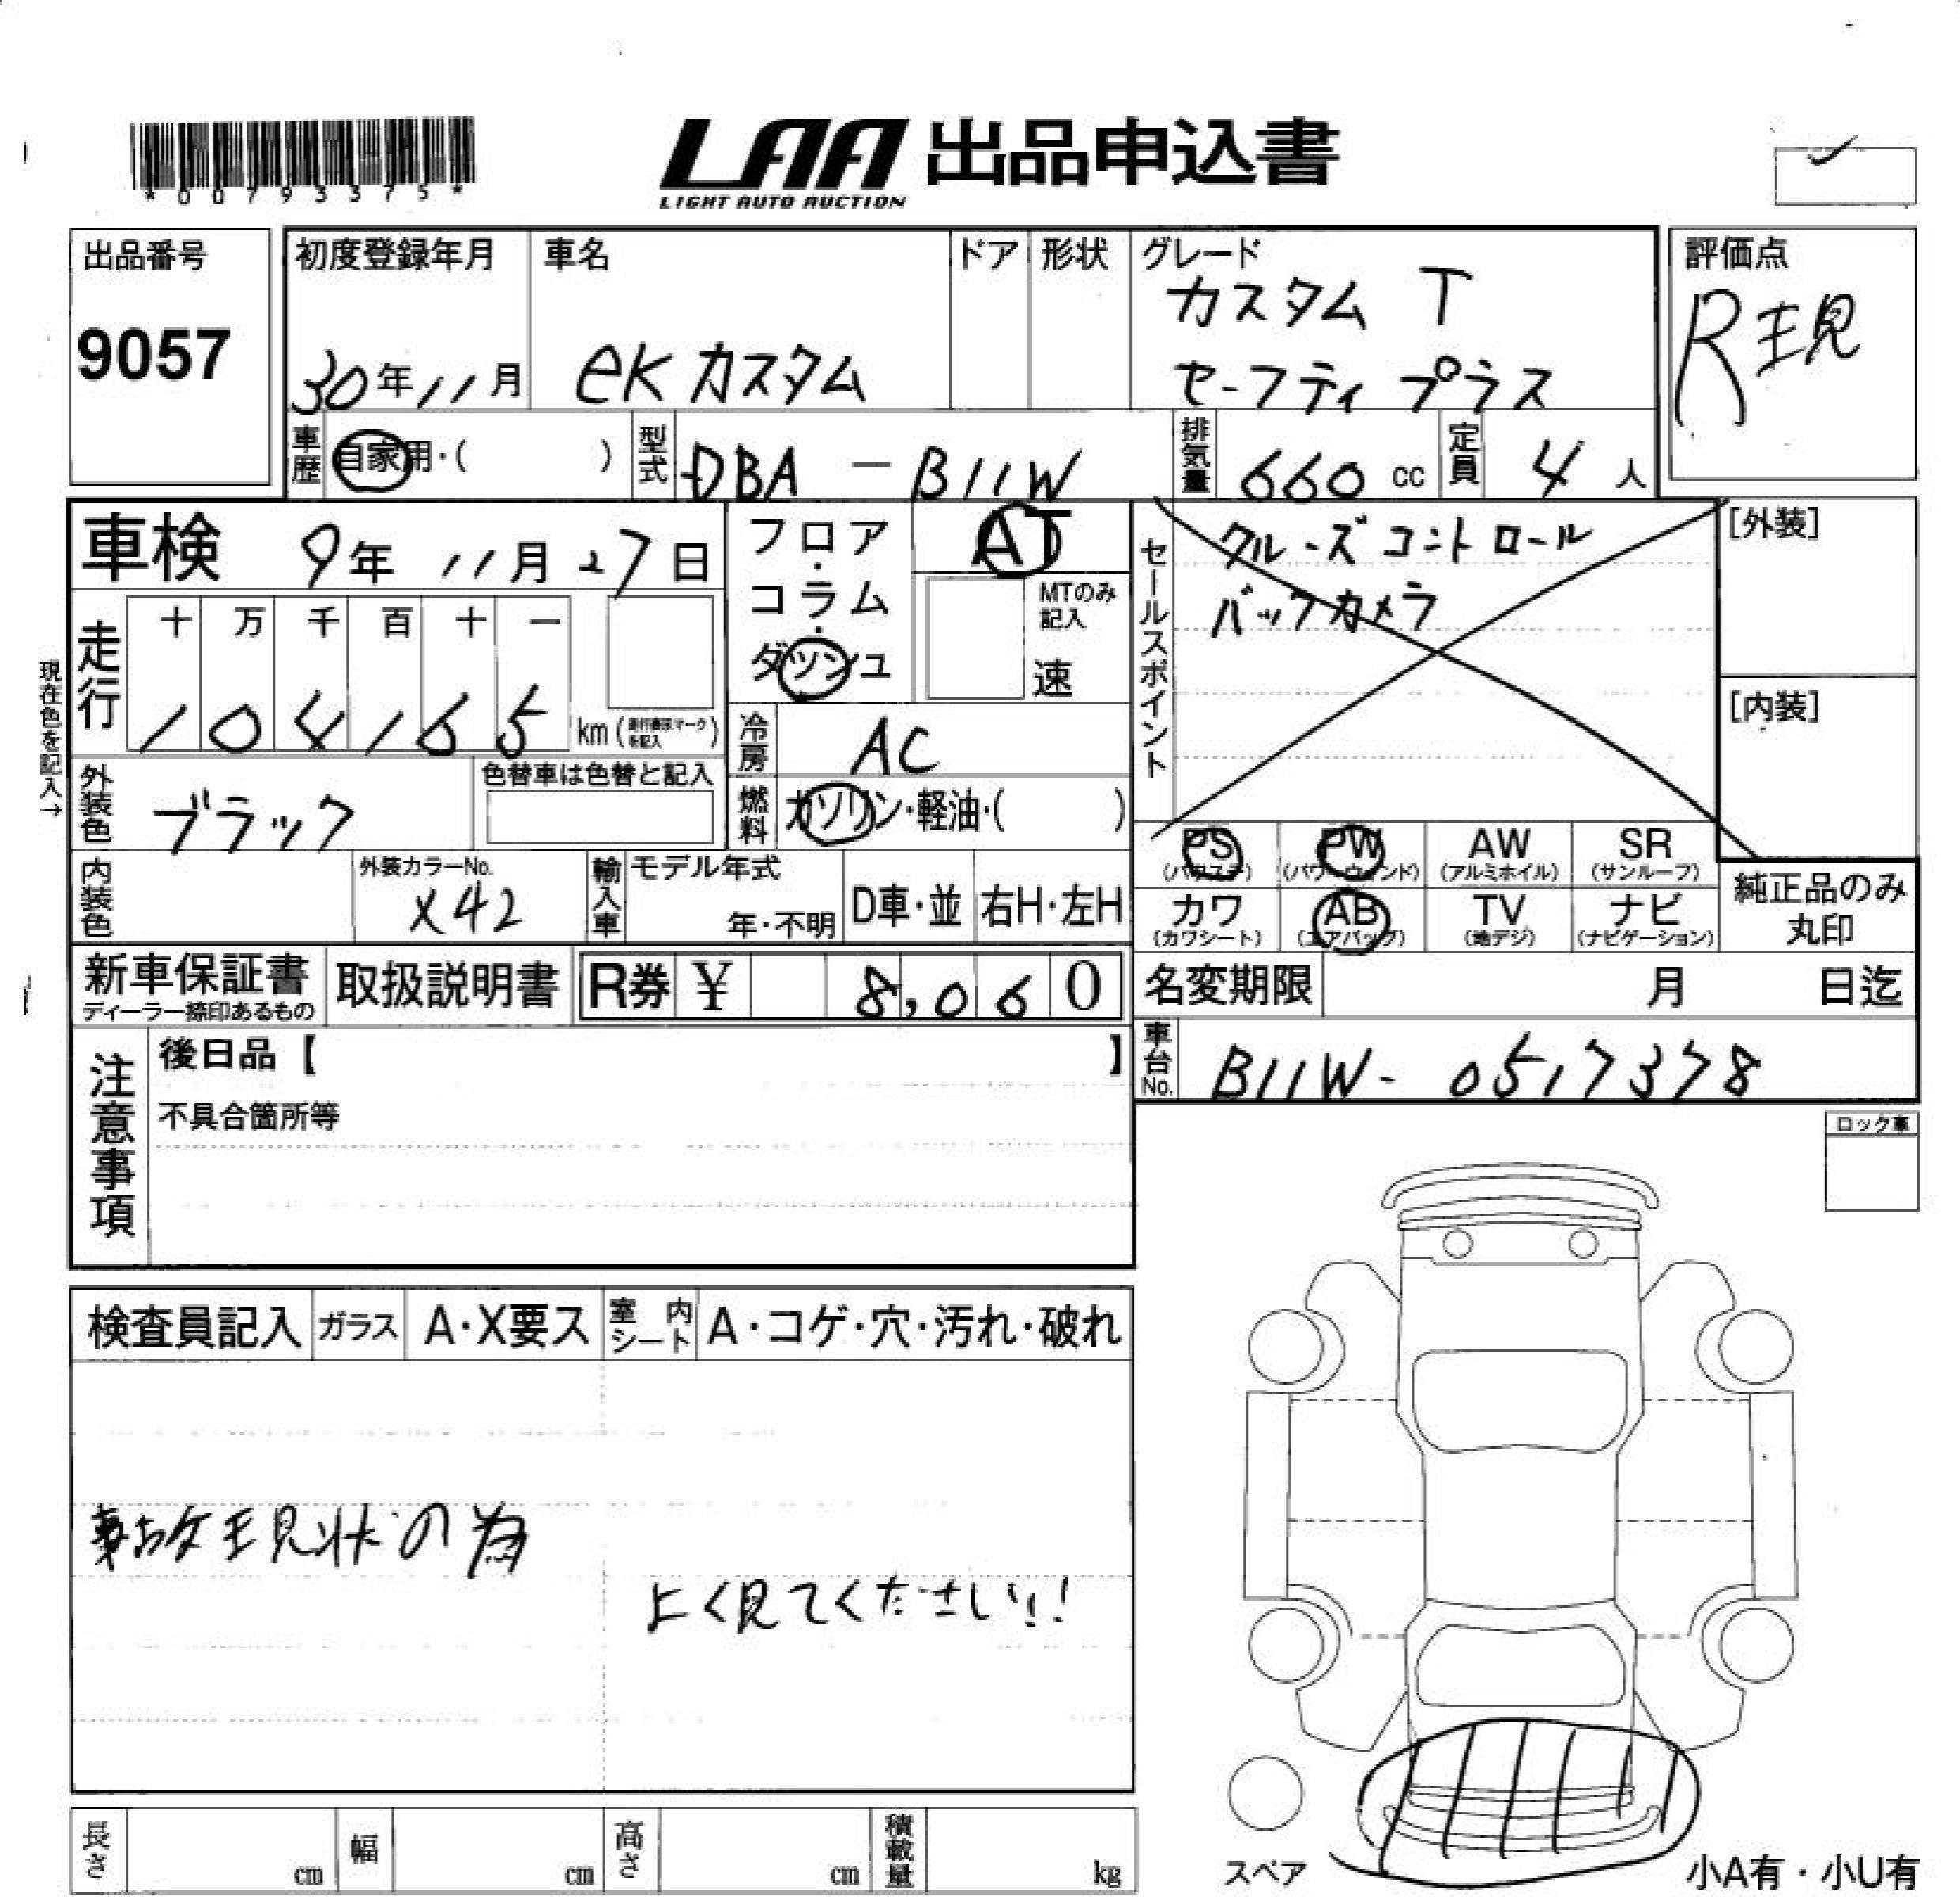 *00793375*
LAA 出品申込書
LIGHT AUTO AUCTION
出品番号
9057
初度登録年月
30年11月
車名
eKカスタム
ドア
形状
グレード
カスタム T
セーフティ プラス
評価点
R現
車歴
自家用・( )
型式
DBA - B11W
排気量
660 cc
定員
4 人
車検 9年 11月 27日
現在色を記入→
走行
十 万 千 百 十 一
1 0 4 1 6 5 km (走行表示マークを記入)
フロア・コラム・ダッシュ
AT
MTのみ記入
速
冷房
AC
燃料
ガソリン・軽油・( )
セールスポイント
クルーズコントロール
バックカメラ
[外装]
[内装]
外装色
ブラック
色替車は色替と記入
内装色
外装カラーNo.
X42
輸入車
モデル年式
年・不明
D車・並
右H・左H
PS
(パワステ)
PW
(パワーウィンド)
AW
(アルミホイル)
SR
(サンルーフ)
カワ
(カワシート)
AB
(エアバック)
TV
(地デジ)
ナビ
(ナビゲーション)
純正品のみ
丸印
新車保証書
ディーラー捺印あるもの
取扱説明書
R券 ¥ 8,060
名変期限 月 日迄
車台No.
B11W- 0517378
注意事項
後日品【 】
不具合箇所等
ロック車
検査員記入
ガラス
A・X要ス
室内シート
A・コゲ・穴・汚れ・破れ
事故現状の為
よく見てください!!
長さ cm
幅 cm
高さ cm
積載量 kg
スペア
小A有・小U有